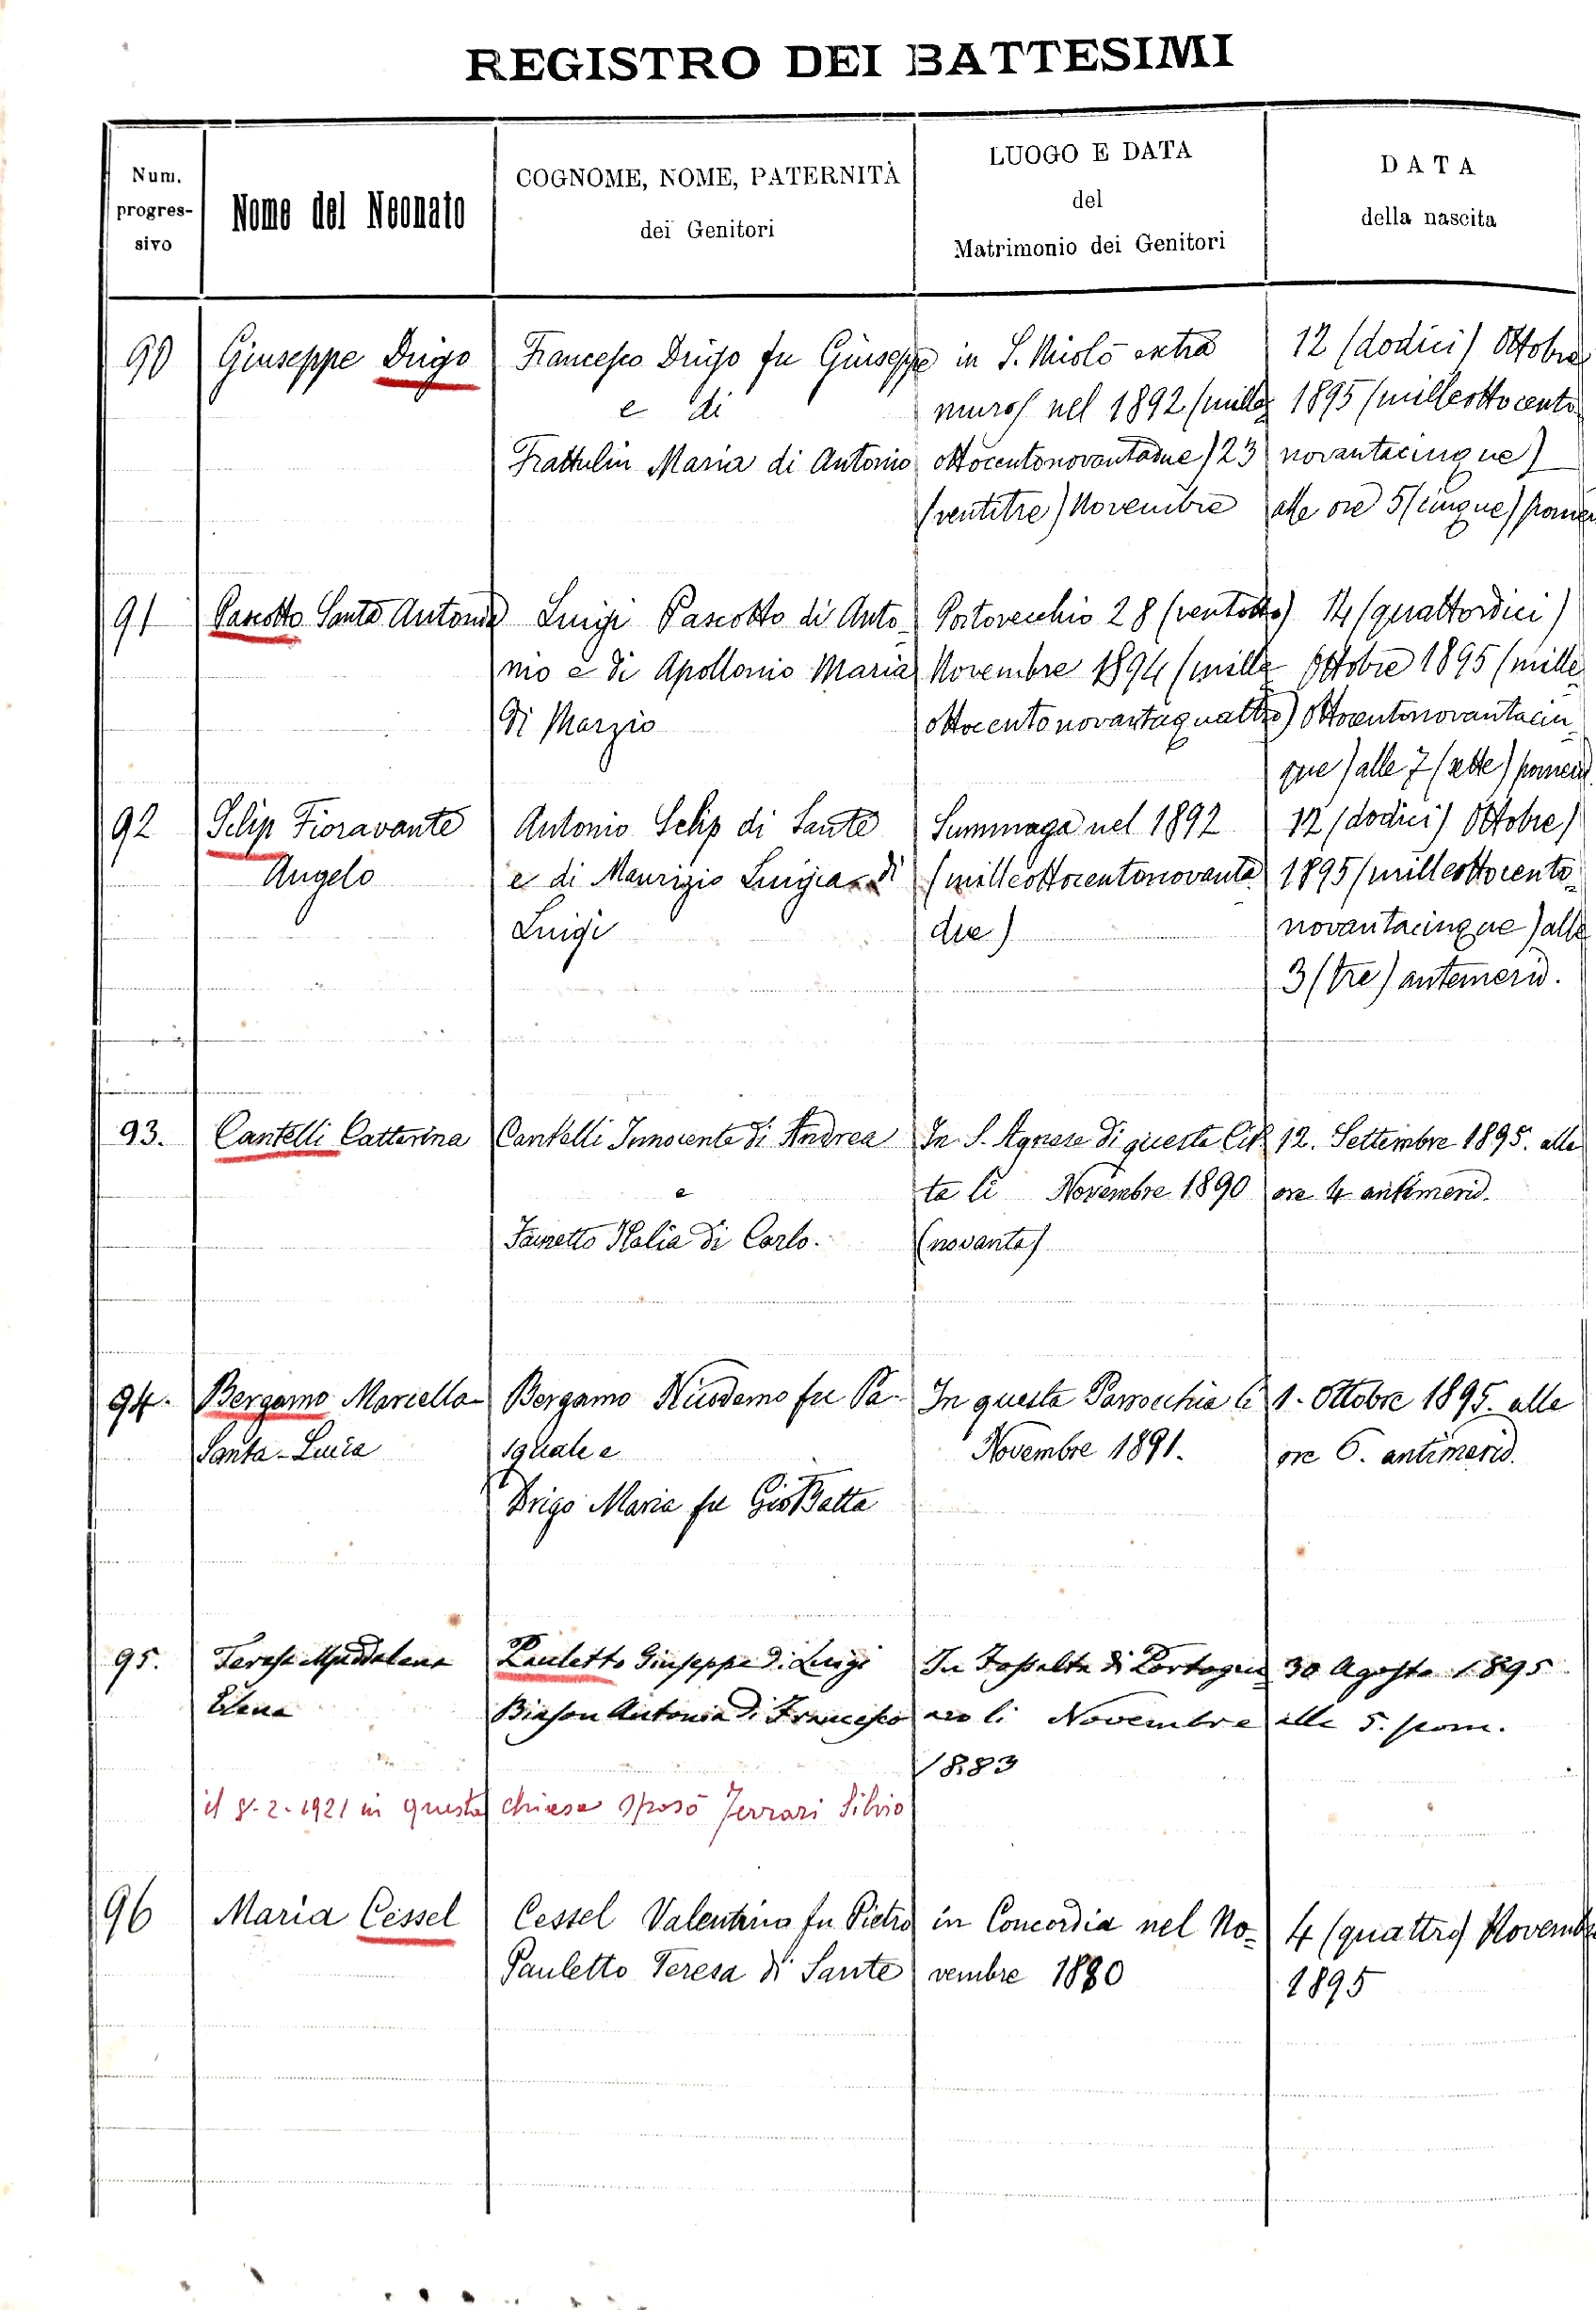 REGISTRO DEI BATTESIMI
Num.
progres-
sivo
Nome del Neonato
COGNOME, NOME, PATERNITÀ
dei Genitori
LUOGO E DATA
del
Matrimonio dei Genitori
DATA
della nascita
90
Giuseppe Drigo
Francesco Drigo fu Giuseppe
e di
Frattulin Maria di Antonio
in S. Nicolò extra
muros nel 1892 (mille
ottocentonovantadue) 23
(ventitre) Novembre
12 (dodici) Ottobre
1895 (milleottocento
novantacinque)
alle ore 5 (cinque) pomer
91
Pascotto Santa Antonia
Luigi Pascotto di Anto
nio e di Apollonio Maria
di Marzio
Portovecchio 28 (ventotto)
Novembre 1894 (mille
ottocentonovantaquattro)
14 (quattordici)
Ottobre 1895 (mille
ottocentonovantacin
que) alle 7 (sette) pomerid
92
Selip Fioravante
Angelo
Antonio Selip di Sante
e di Maurizio Luigia di
Luigi
Summaga nel 1892
(milleottocentonovanta
due)
12 (dodici) Ottobre)
1895 (milleottocento
novantacinque) alle
3 (tre) antemerid.
93.
Cantelli Catterina
Cantelli Innocente di Andrea
e
Italia di Carlo.
In S. Agnese di questa Cit
ta li Novembre 1890
(novanta)
12. Settembre 1895. alle
ore 4 antimerid.
94.
Bergamo Marcella
Santa-Lucia
Bergamo Nicodemo fu Pa-
squale e
Drigo Maria fu GioBatta
In questa Parrocchia li
Novembre 1891.
1. Ottobre 1895. alle
ore 6. antimerid.
95.
Teresa Maddalena
Elena
Pauletto Giuseppe di Luigi
Biason Antonia di Francesco
In Fossalta di Portogru
aro li Novembre
1883
30 Agosto 1895
alle 5. pom.
il 8-2-1921 in questa chiesa sposò Ferrari Silvio
96
Maria Cessel
Cessel Valentino fu Pietro
Pauletto Teresa di Sante
in Concordia nel No-
vembre 1880
4 (quattro) Novembre
1895